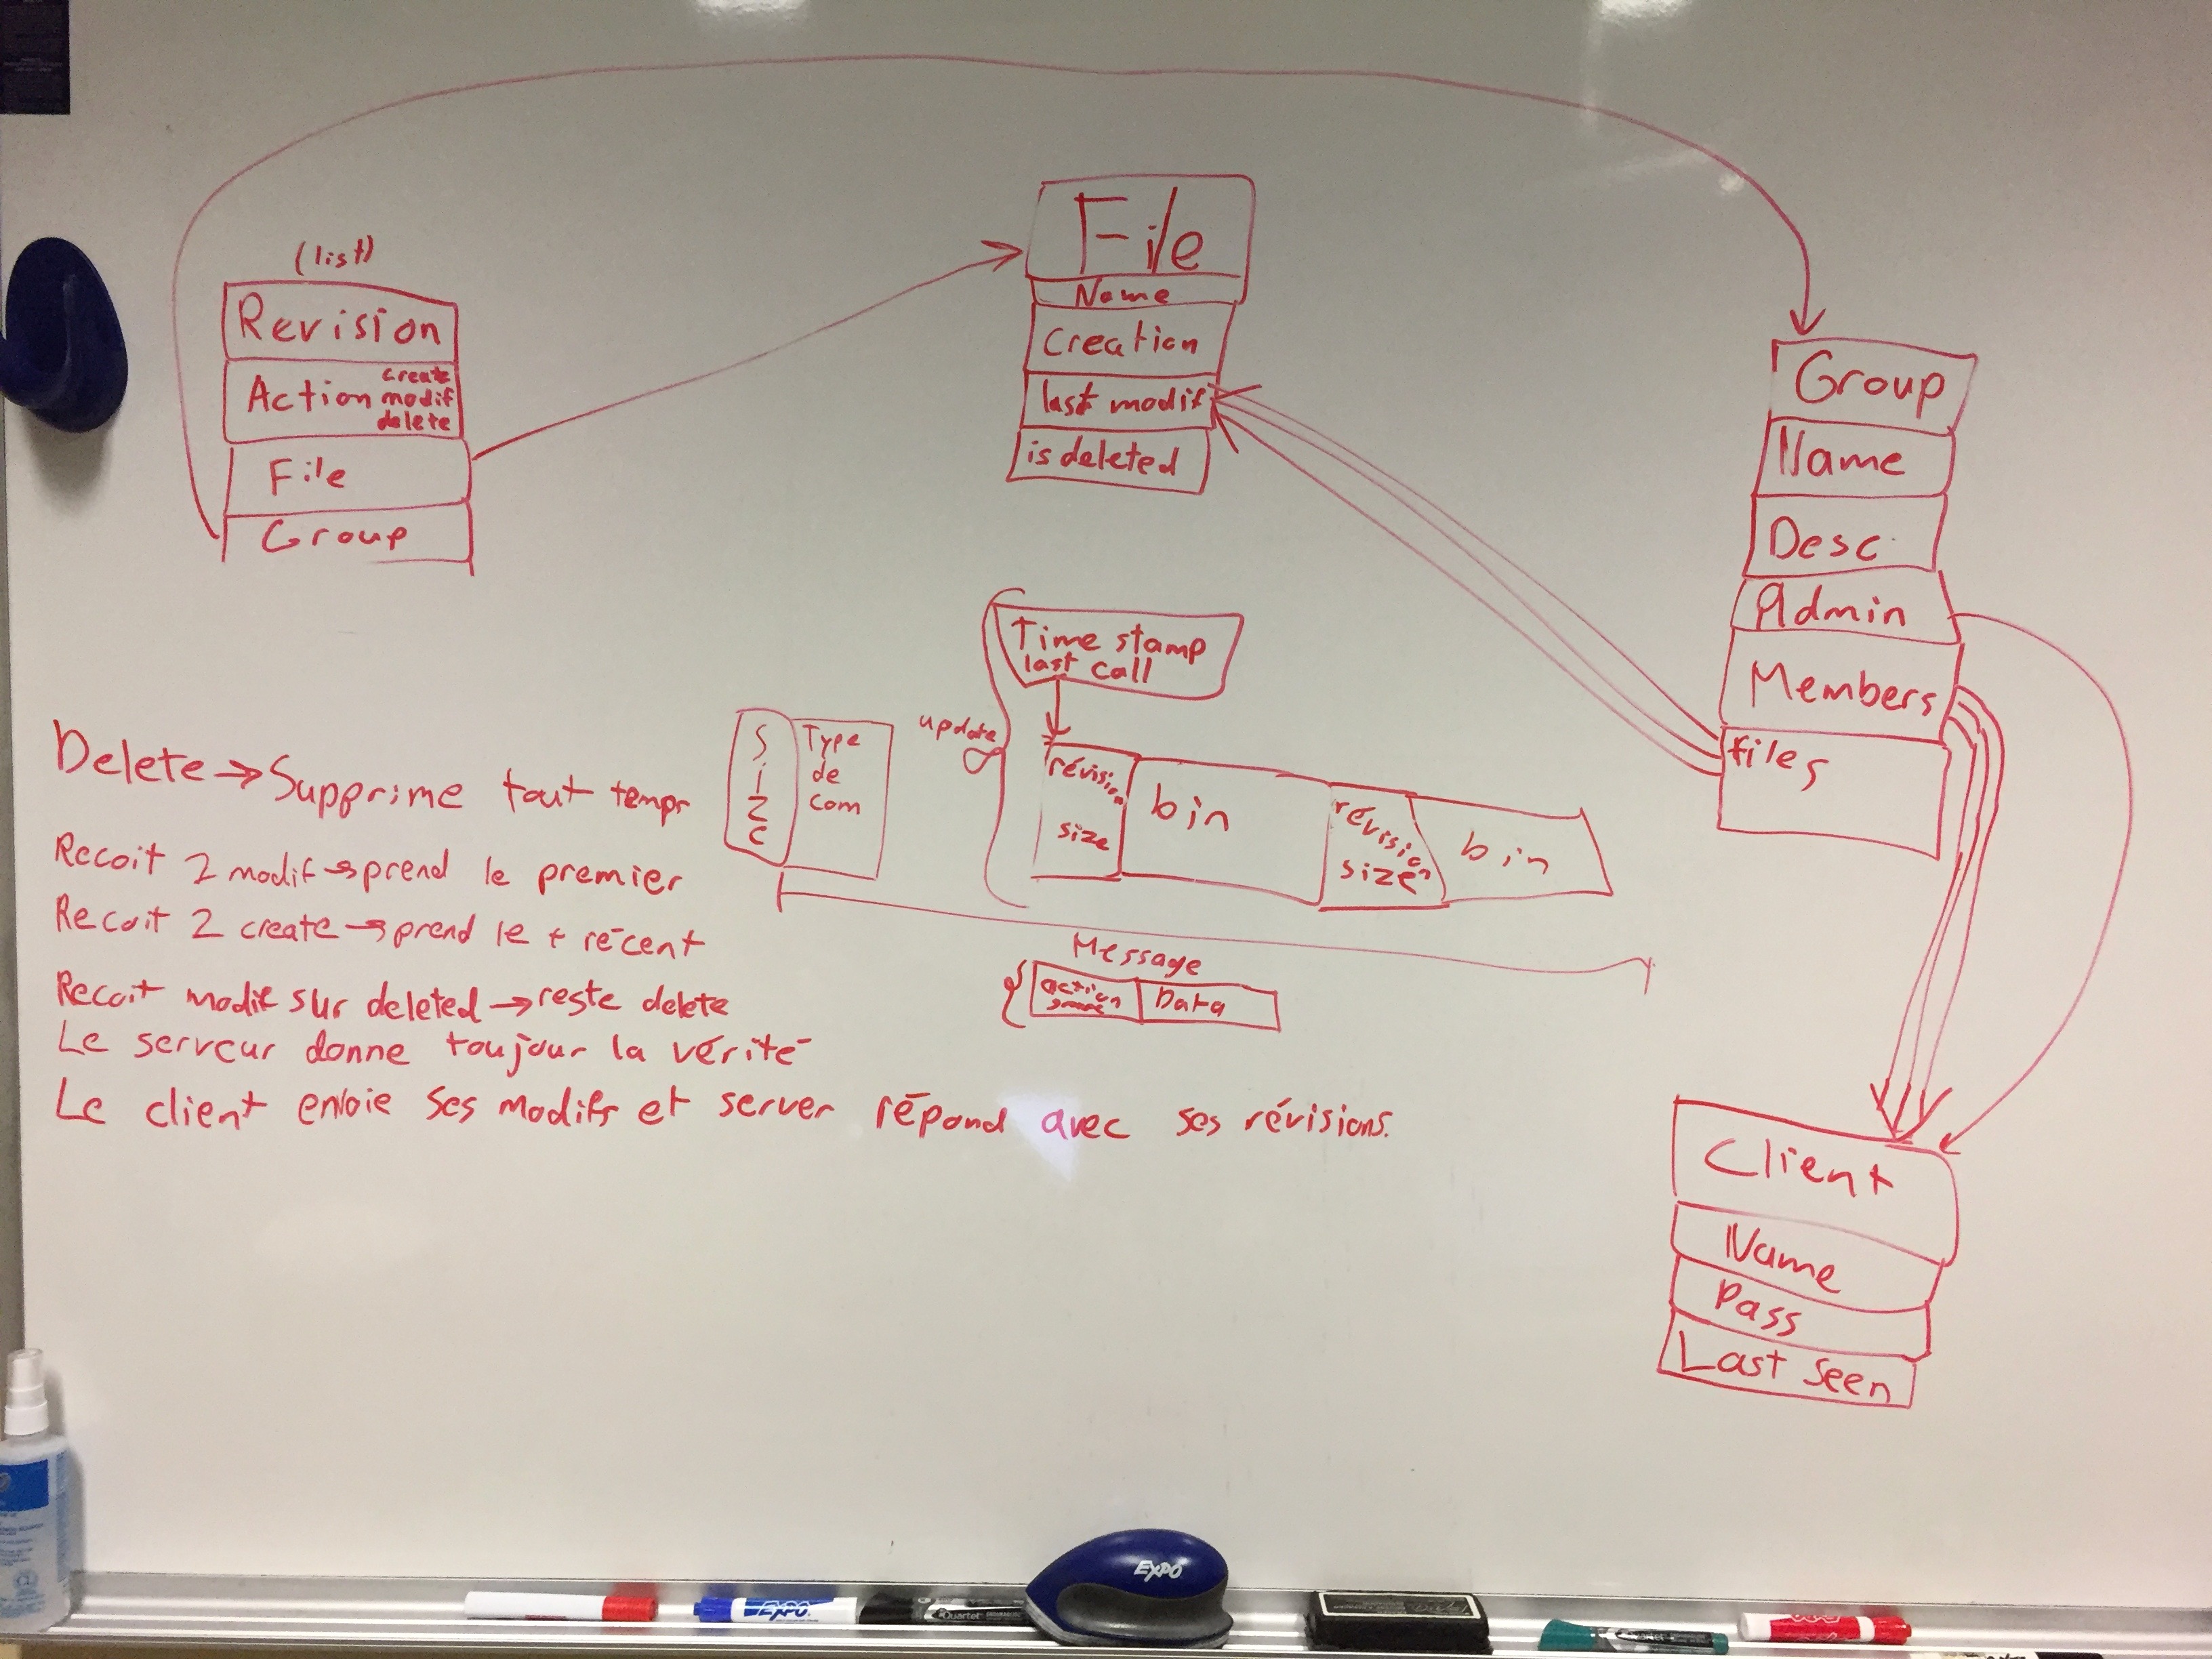 (list)
Revision
Action create
modif
delete
File
Group
File
Name
Creation
last modif
is deleted
Group
Name
Desc.
Admin
Members
files
Time stamp
last call
update
Size
Type
de
com
révision
size
bin
révision
size
bin
Message
action
Data
Delete → Supprime tout temps
Recoit 2 modif → prend le premier
Recoit 2 create → prend le + récent
Recoit modif sur deleted → reste delete
Le serveur donne toujour la vérité
Le client envoie ses modifs et server répond avec ses révisions.
Client
Name
Pass
Last seen
EXPO
EXPO
Quartet
Quartet